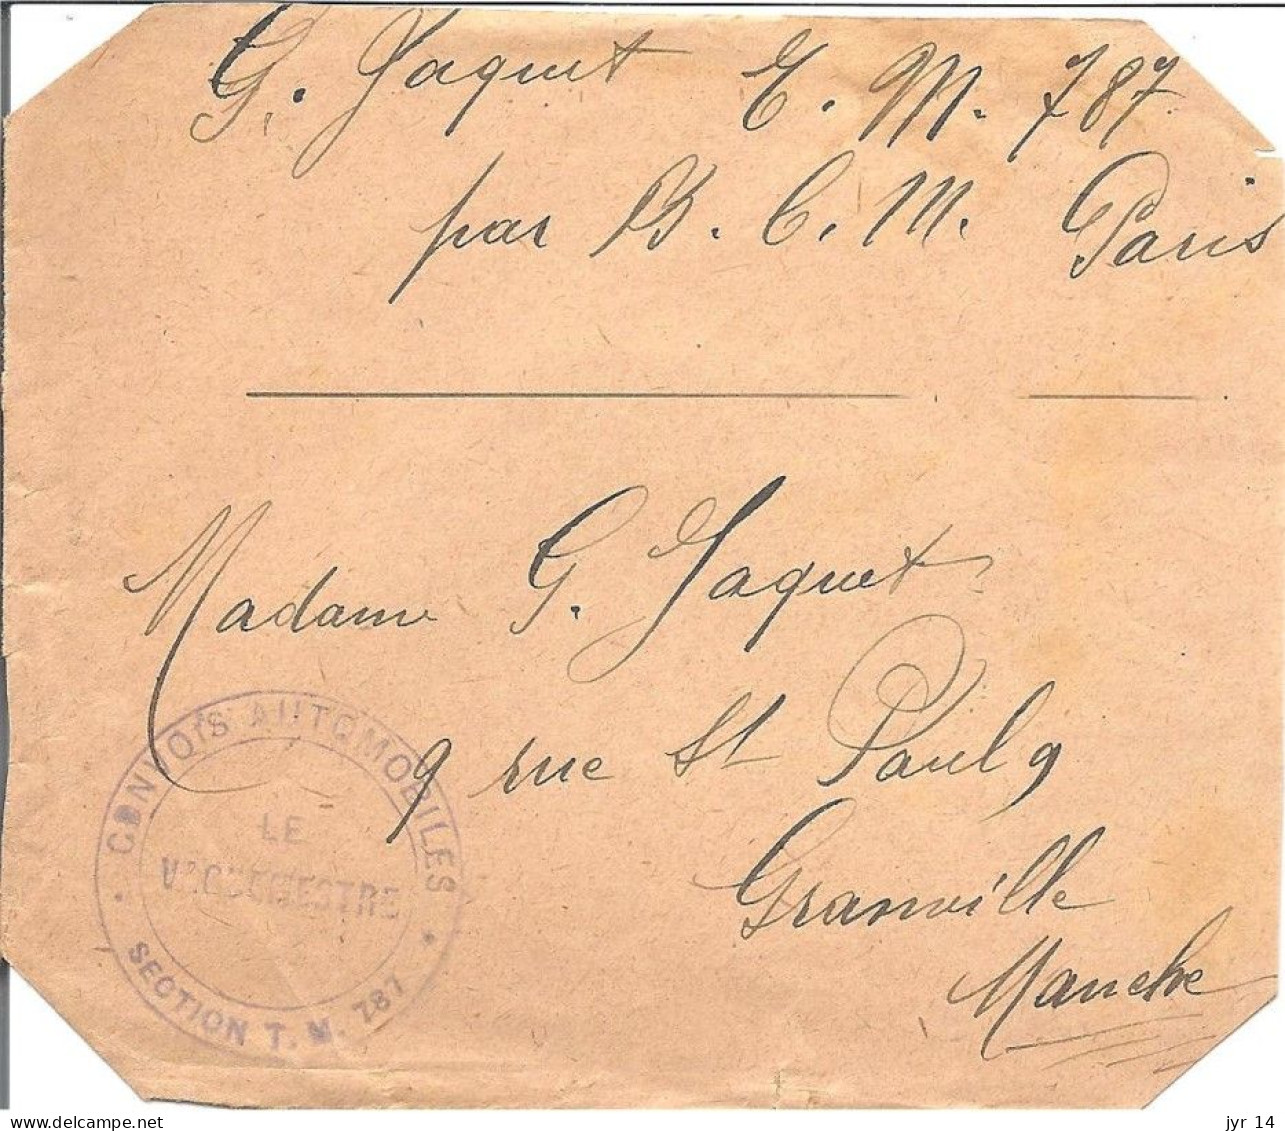 G. Jaquet E. M. 787
par B. C. M. Paris
Madame G. Jaquet
9 rue St Paul 9
Granville
Manche
CONVOIS AUTOMOBILES
LE
VAGUEMESTRE
SECTION T. M. 787
www.delcampe.net
jyr 14